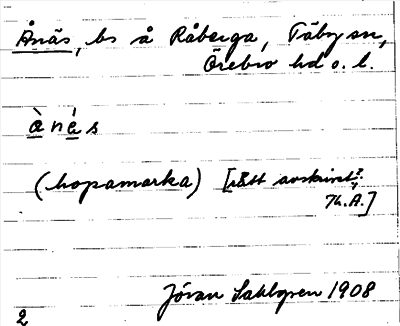 Ånäs, bs å Råberga, Täby sn,
Örebro hd o. l.
ànás
(hopamarka) [rätt avskrivet?
Th.A.]
Jöran Sahlgren 1908
2